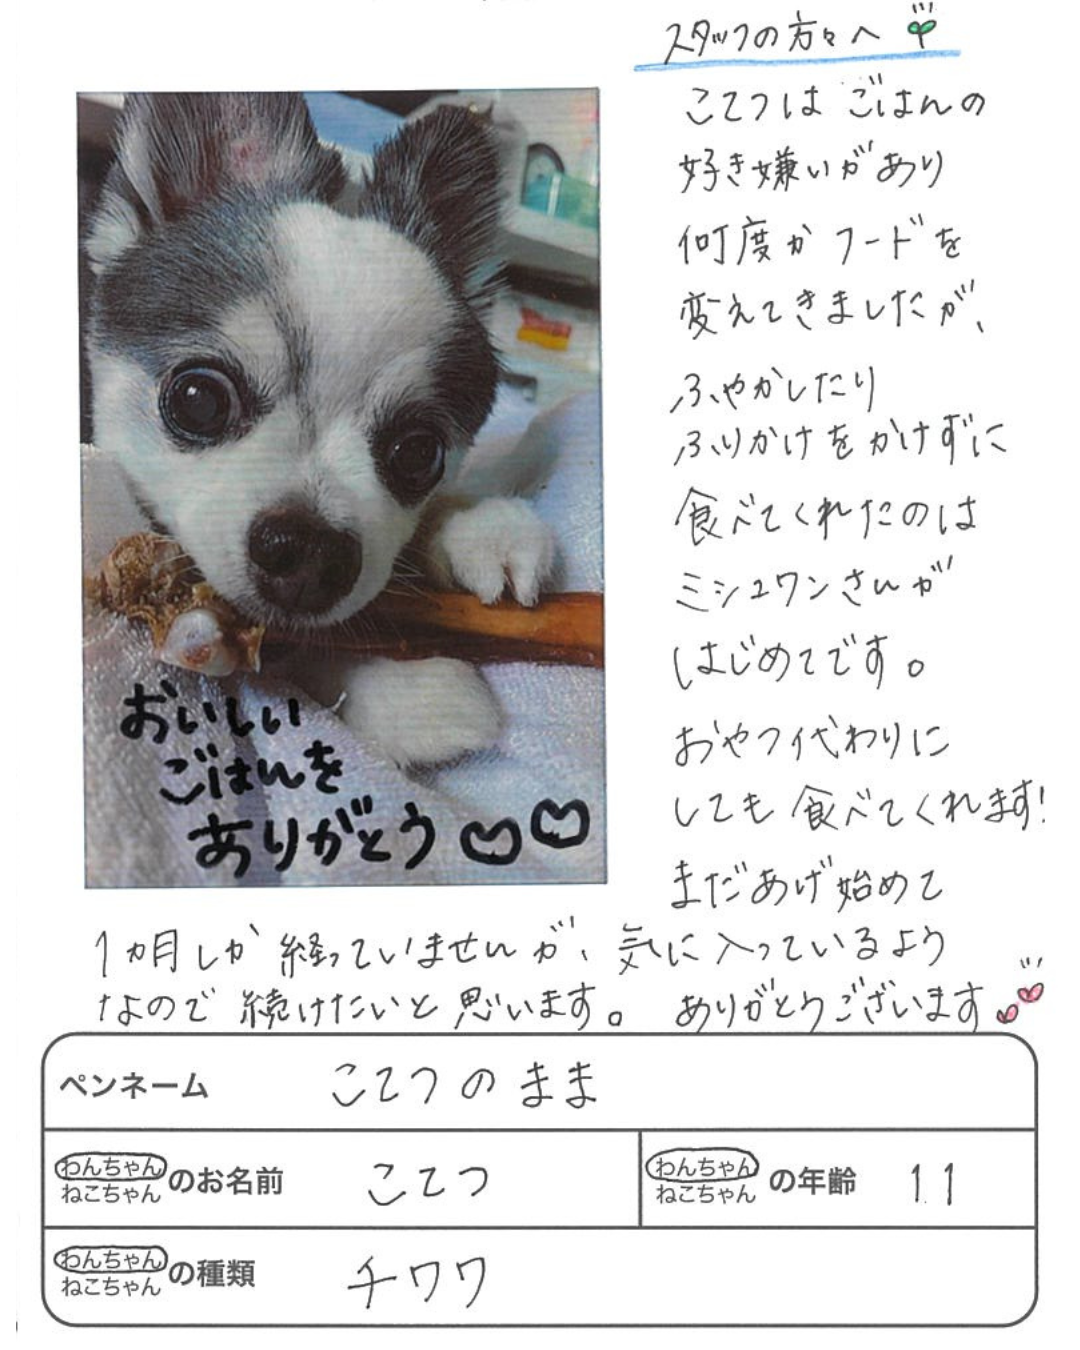 スタッフの方々へ
こてつは ごはんの
好き嫌いがあり
何度か フードを
変えてきましたが、
ふやかしたり
ふりかけをかけずに
食べてくれたのは
ミシュワンさんが
はじめてです。
おやつ代わりに
しても 食べてくれます!
まだあげ始めて
1ヵ月しか 経っていませんが、気に入っているよう
なので 続けたいと思います。 ありがとうございます
おいしい
ごはんを
ありがとう
ペンネーム こてつのまま
わんちゃん
ねこちゃん のお名前 こてつ
わんちゃん
ねこちゃん の年齢 11
わんちゃん
ねこちゃん の種類 チワワ